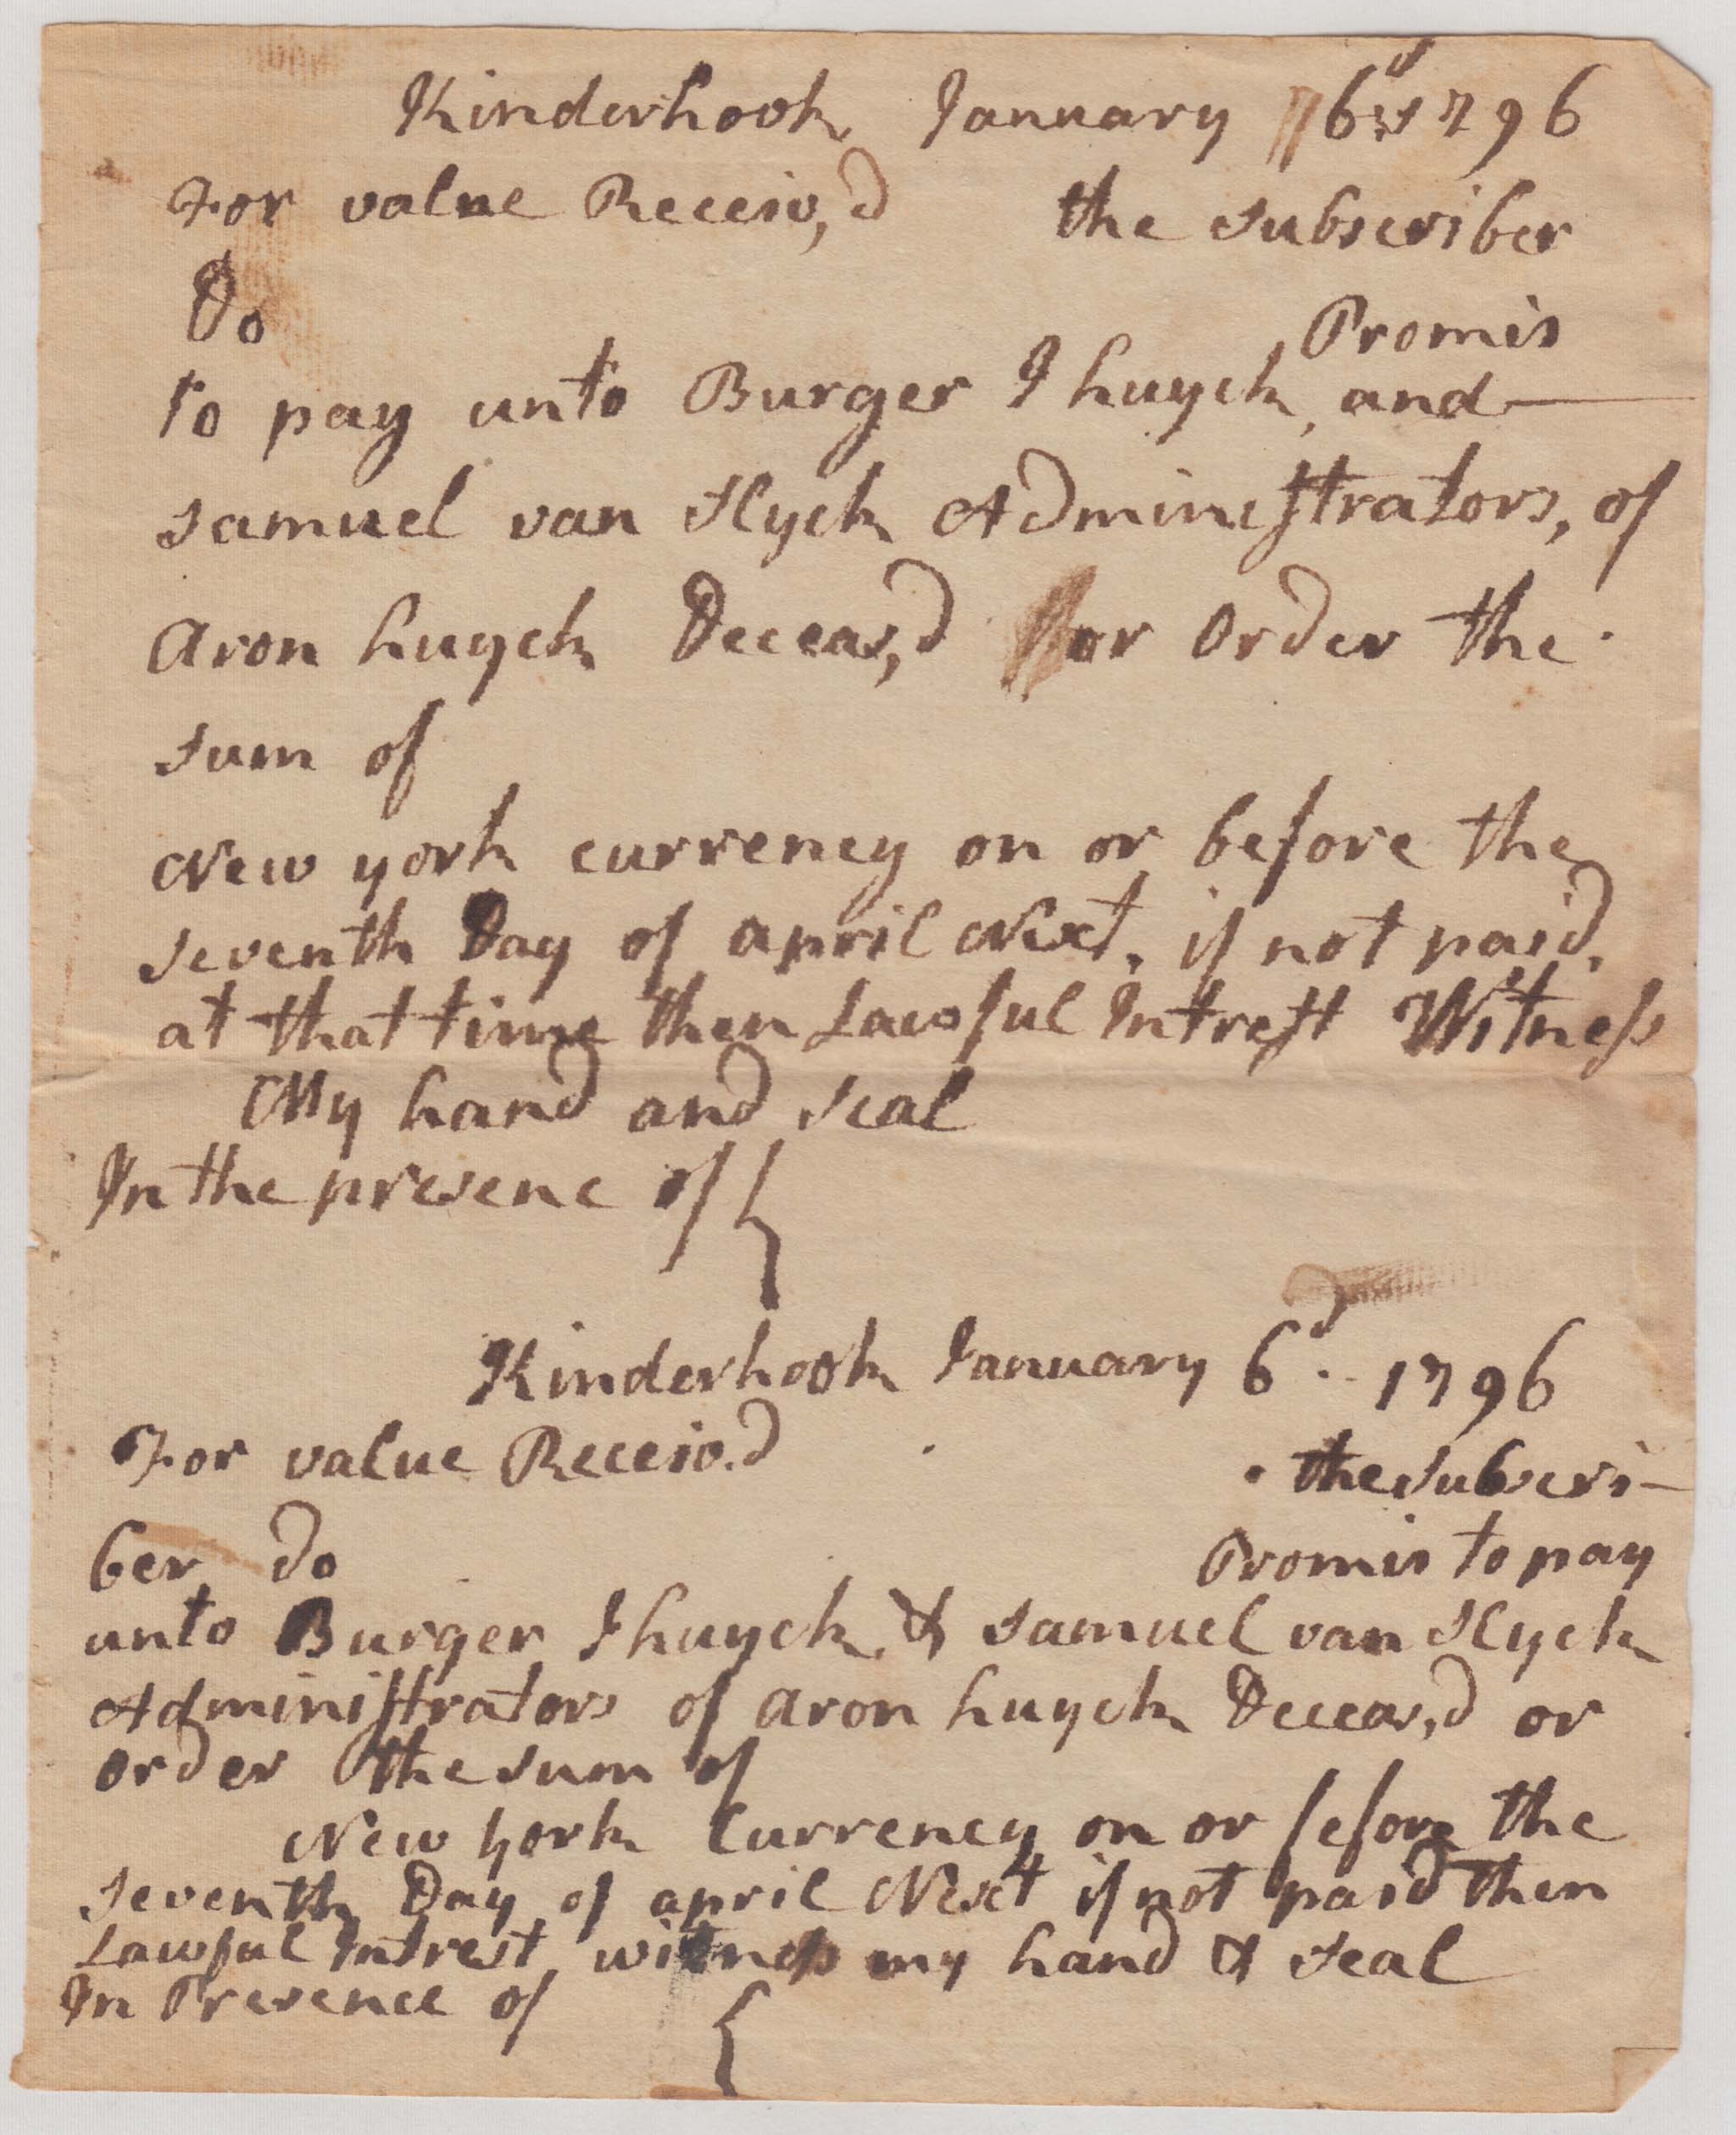 Kinderhook January 6d 1796
For value Receiv,d the subscriber
Do Promis
to pay unto Burger J huyck, and
samuel van Slyck Administrators, of
Aron huyck Deceas,d or Order the
sum of
New york currency on or before the
seventh Day of april Next, if not paid,
at that time then Lawful Intrest Witness
My hand and seal
In the presenc of {
Kinderhook January 6d. 1796
For value Receiv.d the subscri-
ber do Promis to pay
unto Burger J huyck, & samuel van Slyck
Administrators of aron huyck Deceas,d or
order the sum of
New york Currency on or before the
seventh Day of april Next if not paid then
Lawful Intrest witness my hand & Seal
In Presence of {